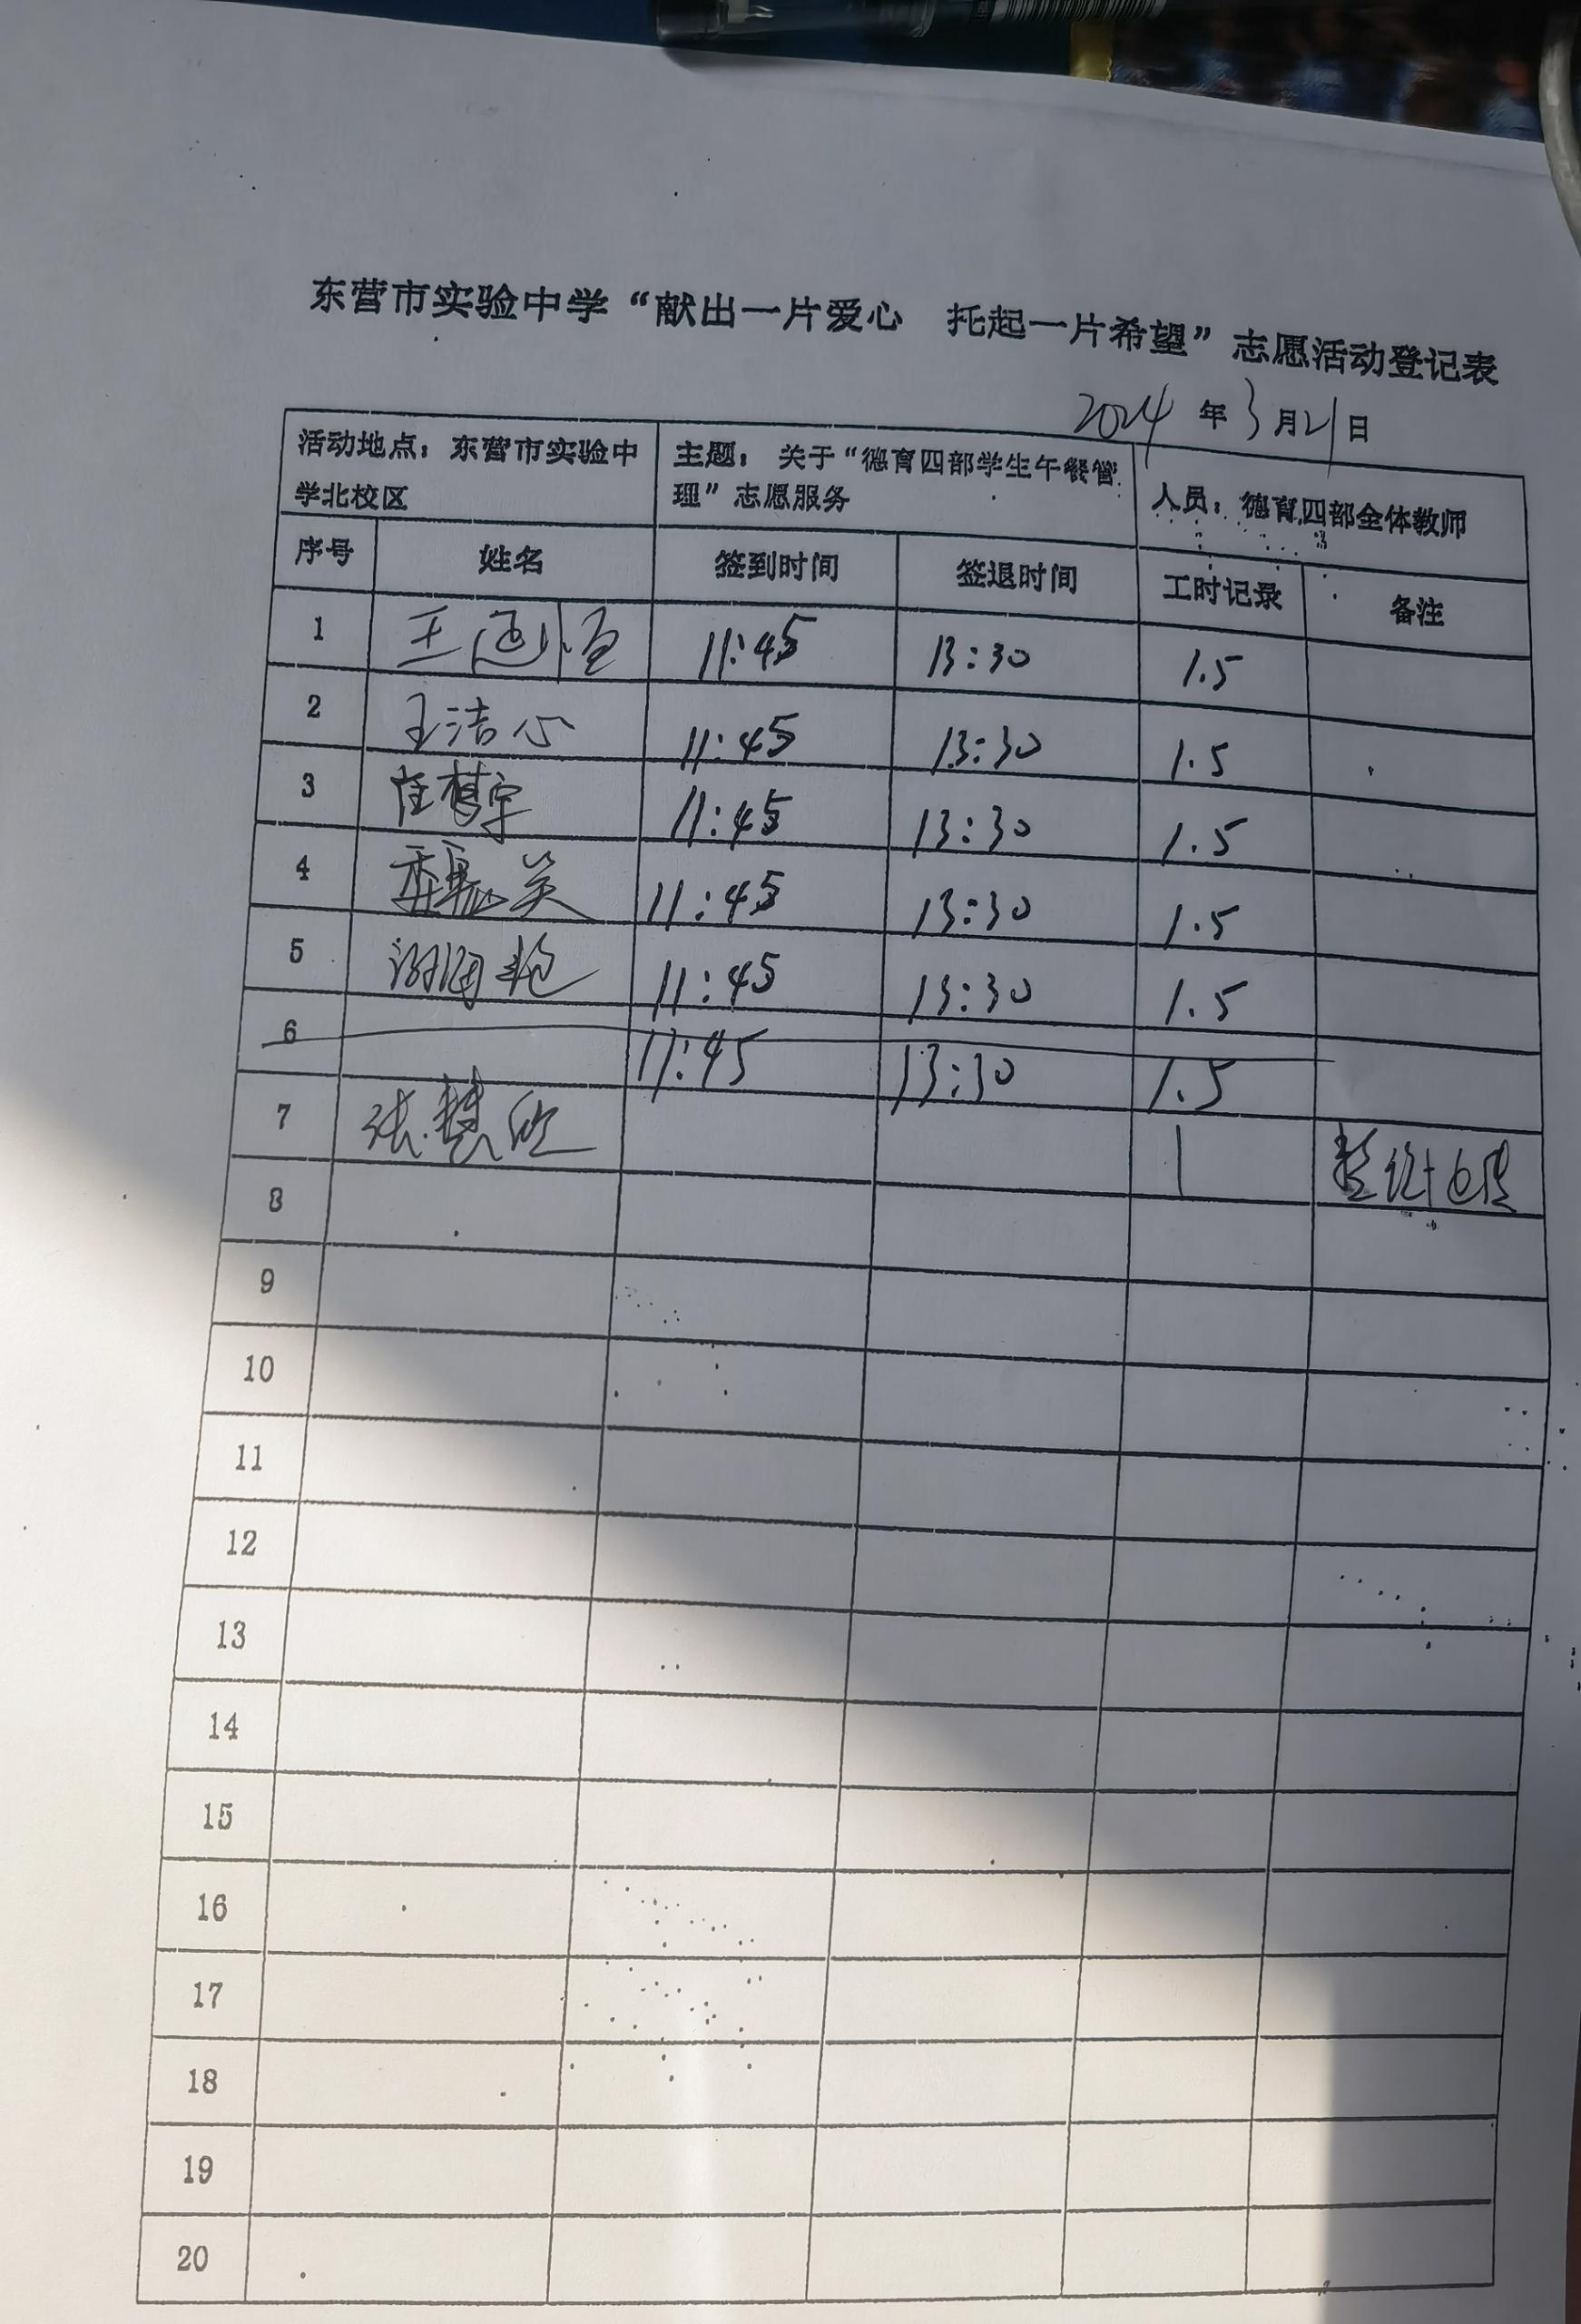 东营市实验中学“献出一片爱心 托起一片希望”志愿活动登记表
2024年3月21日
活动地点：东营市实验中学北校区 主题：关于“德育四部学生午餐管理”志愿服务 人员：德育四部全体教师
序号 姓名 签到时间 签退时间 工时记录 备注
1 王 11:45 13:30 1.5
2 王洁心 11:45 13:30 1.5
3 11:45 13:30 1.5
4 11:45 13:30 1.5
5 11:45 13:30 1.5
6 11:45 13:30 1.5
7 张慧欣 1
8
9
10
11
12
13
14
15
16
17
18
19
20